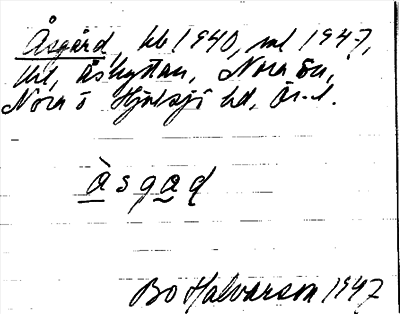 Åsgård, kb 1940, ml 1947,
hd, Åshyttan, Nora sn,
Nora o Hjulsjö hd, Ör. l.
åsgaḍ
Bo Halvarson 1947